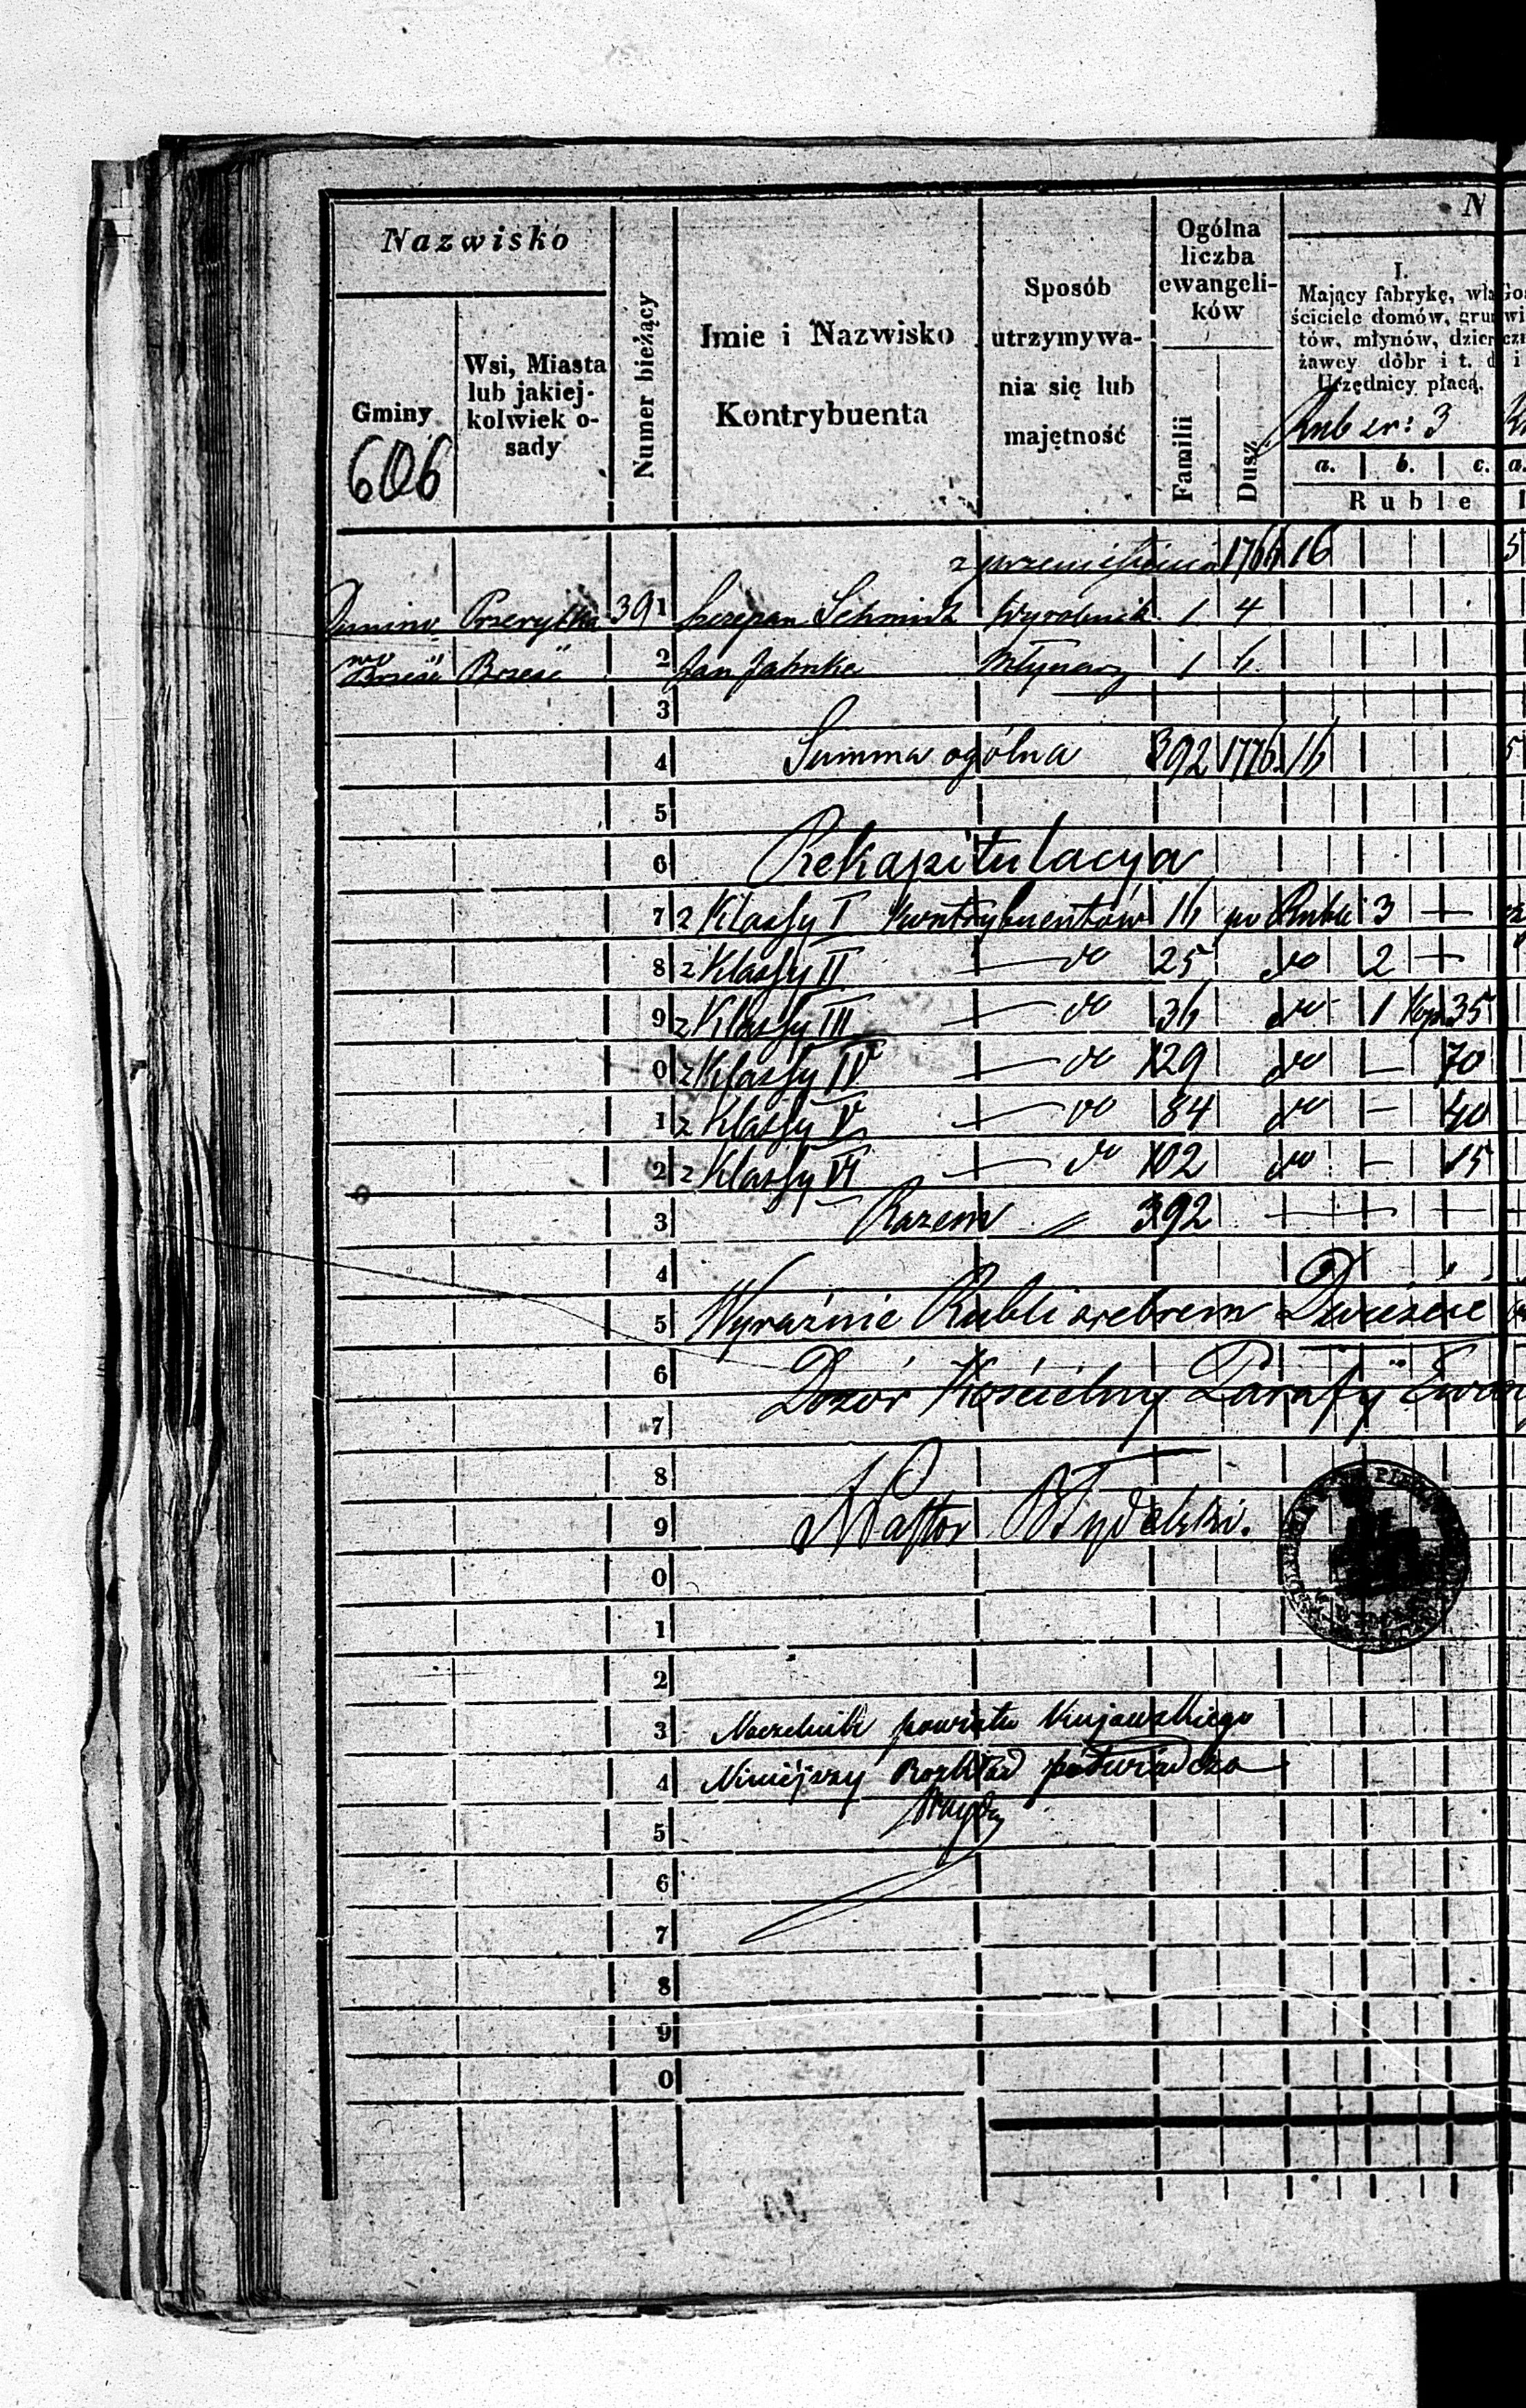 Nazwisko
Gminy
606
Wsi, Miasta
lub jakiej-
kolwiek o-
sady
Numer bieżący
Imie i Nazwisko
Kontrybuenta
Sposób
utrzymywa-
nia się lub
majętność
Ogólna
liczba
ewangeli-
ków
Familii
Dusz
N
I.
Mający fabrykę, wła
ściciele domów, grun
tów, młynów, dzier
żawcy dóbr i t. d
Urzędnicy płacą.
Rub sr: 3
a. b. c. a.
Ruble
z przeniesienia 1766 16 5
39 1 Szczepan Schmidt Wyrobnik 1 4
Brześć Brześć 2 Jan Jahnke Młynarz 1 6
3
4 Summa ogólna 392 1776 16 5
5
6 Rekapitulacya
7 z Klassy I kontrybuentów 16 po Rubli 3 —
8 z Klassy II — do 25 do 2 —
9 z Klassy III — do 36 do 1 Kop 35
0 z Klassy IV — do 129 do — 70
1 z Klassy V — do 84 do — 40
2 z Klassy VI — do 102 do — 15
3 Razem 392 — — —
4
5 Wyraźnie Rubli srebrem Dwieście
6 Dozór Kościelny Parafÿ Ewang
7
8
9 Pastor
0
1
2
3 Naczelnik powiatu Kujawskiego
4 Niniejszy Rozkład poświadcza
5
6
7
8
9
0